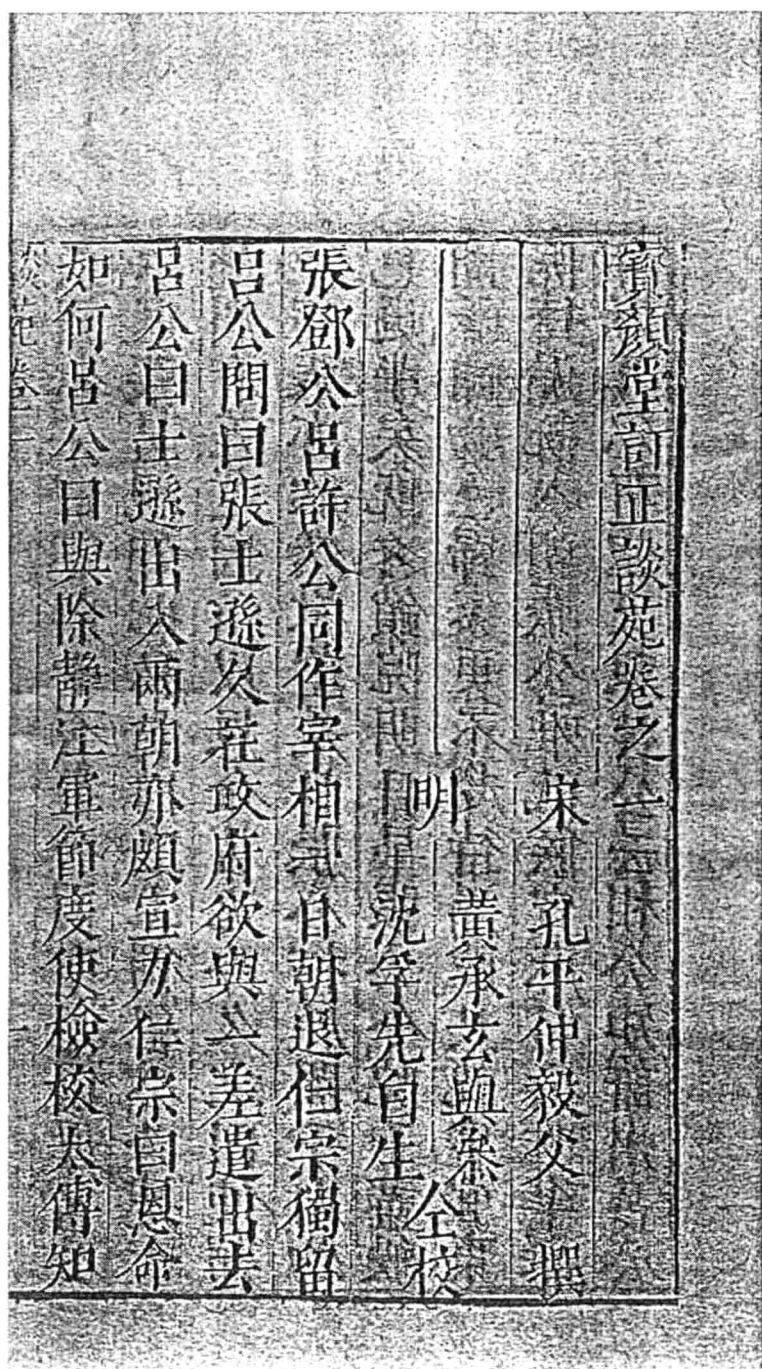 寳顏堂訂正談苑卷之一
宋 孔平仲毅父 撰
明 黃承玄與參 仝校
沈孚先白生
張鄧公呂許公同作宰相一日朝退仁宗獨留
呂公問曰張士遜久在政府欲與一差遣出去
呂公曰士遜出入兩朝亦頗宣力仁宗曰恩命
如何呂公曰與除靜江軍節度使檢校太傅知
談苑卷一